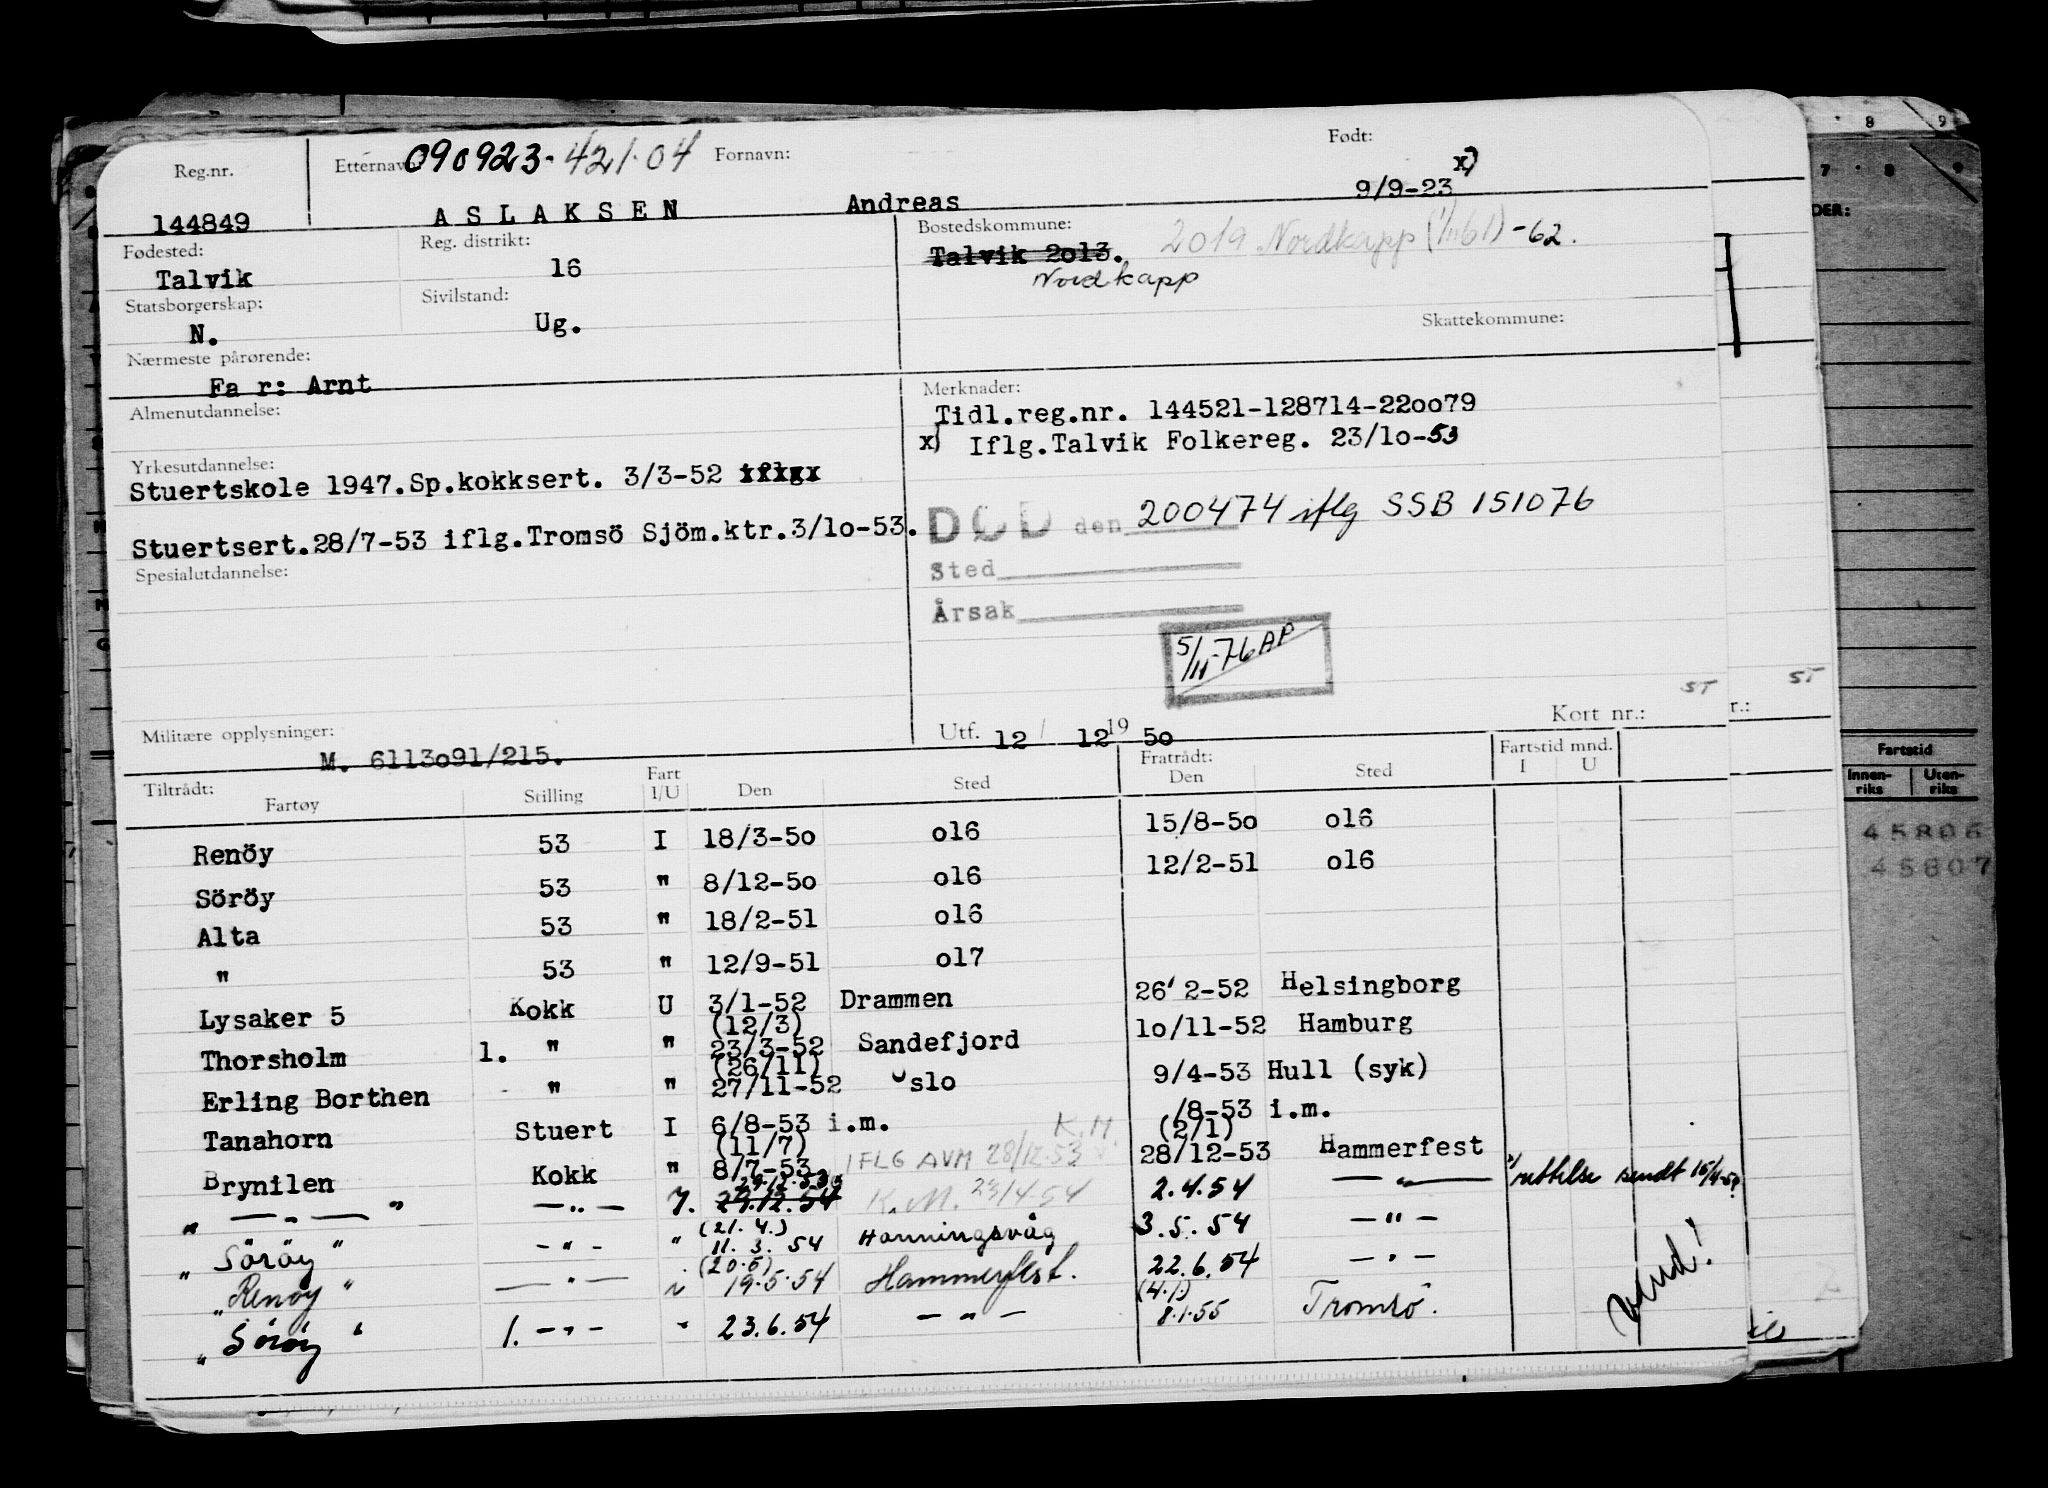 Reg.nr. Etternavn: 090923-42104 Fornavn: Født:
144849 ASLAKSEN Andreas 9/9-23 x)
Fødested: Talvik
Reg. distrikt: 16
Bostedskommune: Talvik 2o13. 2019 Nordkapp (1/11 61) -62.
Nordkapp
Statsborgerskap: N.
Sivilstand: Ug.
Skattekommune:
Nærmeste pårørende:
Fa r: Arnt
Almenutdannelse:
Yrkesutdannelse:
Stuertskole 1947.Sp.kokksert. 3/3-52 iflg
Stuertsert.28/7-53 iflg.Tromsö Sjöm.ktr.3/1o-53.
Spesialutdannelse:
Merknader:
Tidl.reg.nr. 144521-128714-22oo79
x) Iflg.Talvik Folkereg. 23/1o-53
DØD den 200474 iflg SSB 151076
Sted
Årsak
5/11-76 AP
ST
ST
Militære opplysninger:
M. 6113o91/215.
Utf. 12 / 12 19 5o
Kort nr.:
r.:
Tiltrådt: Fratrådt: Fartstid mnd.
Fartøy Stilling Fart I/U Den Sted Den Sted I U
Renöy 53 I 18/3-5o o16 15/8-5o o16
Söröy 53 " 8/12-5o o16 12/2-51 o16
Alta 53 " 18/2-51 o16
" 53 " 12/9-51 o17
Lysaker 5 Kokk U 3/1-52 Drammen 26/2-52 Helsingborg
(12/3)
Thorsholm 1. " " 23/3-52 Sandefjord 1o/11-52 Hamburg
(26/11)
Erling Borthen " " 27/11-52 Oslo 9/4-53 Hull (syk)
Tanahorn Stuert I 6/8-53 i.m. /8-53 i.m.
(11/7) K.M. (2/1)
Brynilen Kokk " 8/7-53 IFLG AVM 28/12-53 28/12-53 Hammerfest
29.12.53
" — " — " — " — I. 29.12.54 K.M. 23/4-54 2.4.54 — " — x) rettelse sendt 15/4-59
(21.4.)
" Söröy " - " - " 11.3.54 Honningsvåg 3.5.54 - " -
(20.5)
" Renöy " — " — " 19.5.54 Hammerfest. 22.6.54 - " -
(4.1)
" Söröy " 1. - " - " 23.6.54 - " - 8.1.55 Tromsö.
Vend!
DER:
Fartstid
Innenriks Utenriks
45806
45807
7 8 9
8 9